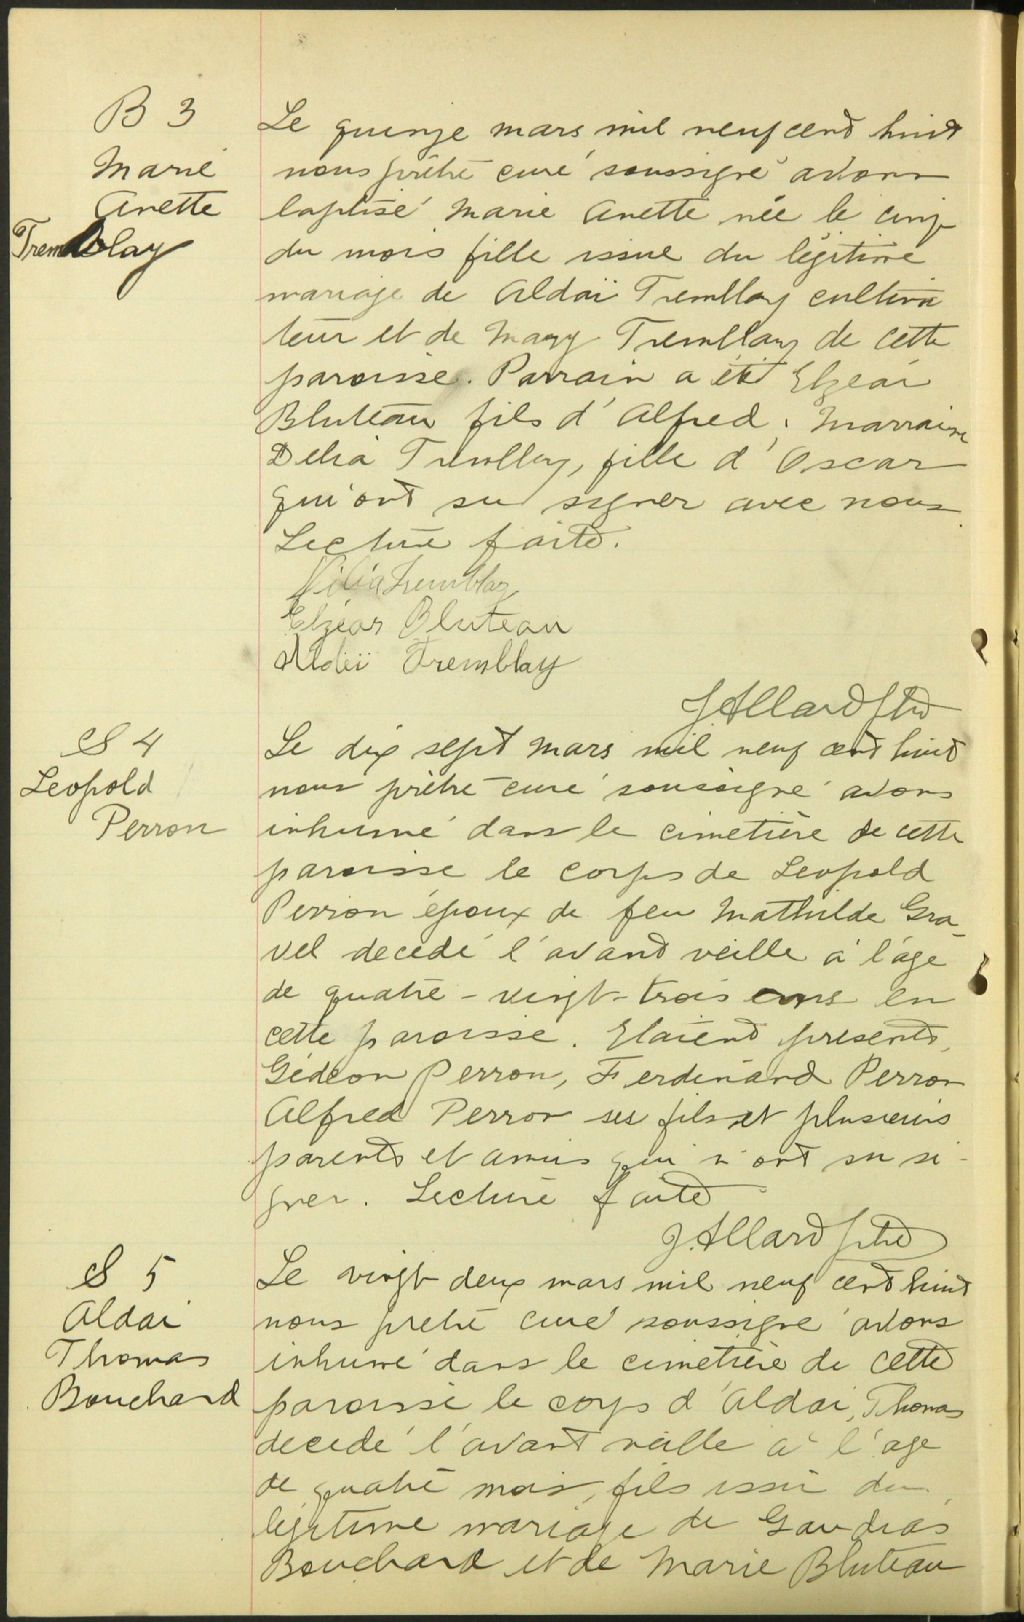 B 3
Marie
Anette
Tremblay
Le quinze mars mil neuf cent huit
nous prêtre curé soussigné avons
baptisé Marie Anette née le cinq
du mois fille issue du légitime
mariage de Aldaï Tremblay cultiva
teur et de Mary Tremblay de cette
paroisse. Parrain a été Elzéar
Bluteau fils d'Alfred, Marraine
Délia Tremblay, fille d'Oscar
qui ont su signer avec nous
Lecture faite.
Délia Tremblay
Elzéar Bluteau
Aldéï Tremblay
J. Allard ptre
S 4
Leopold
Perron
Le dix sept mars mil neuf cent huit
nous prêtre curé soussigné avons
inhumé dans le cimetière de cette
paroisse le corps de Leopold
Perron époux de feu Mathilde Gra-
vel decédé l'avant veille à l'âge
de quatre-vingt-trois ans en
cette paroisse. Etaient présents,
Gédéon Perron, Ferdinand Perron
Alfred Perron ses fils et plusieurs
parents et amis qui n'ont su si-
gner. Lecture faite
J. Allard ptre
S 5
Aldai
Thomas
Bouchard
Le vingt deux mars mil neuf cent huit
nous prêtre curé soussigné avons
inhumé dans le cimetière de cette
paroisse le corps d'Aldai, Thomas
decédé l'avant veille à l'age
de quatre mois, fils issu du
légitime mariage de Gaudias
Bouchard et de Marie Bluteau